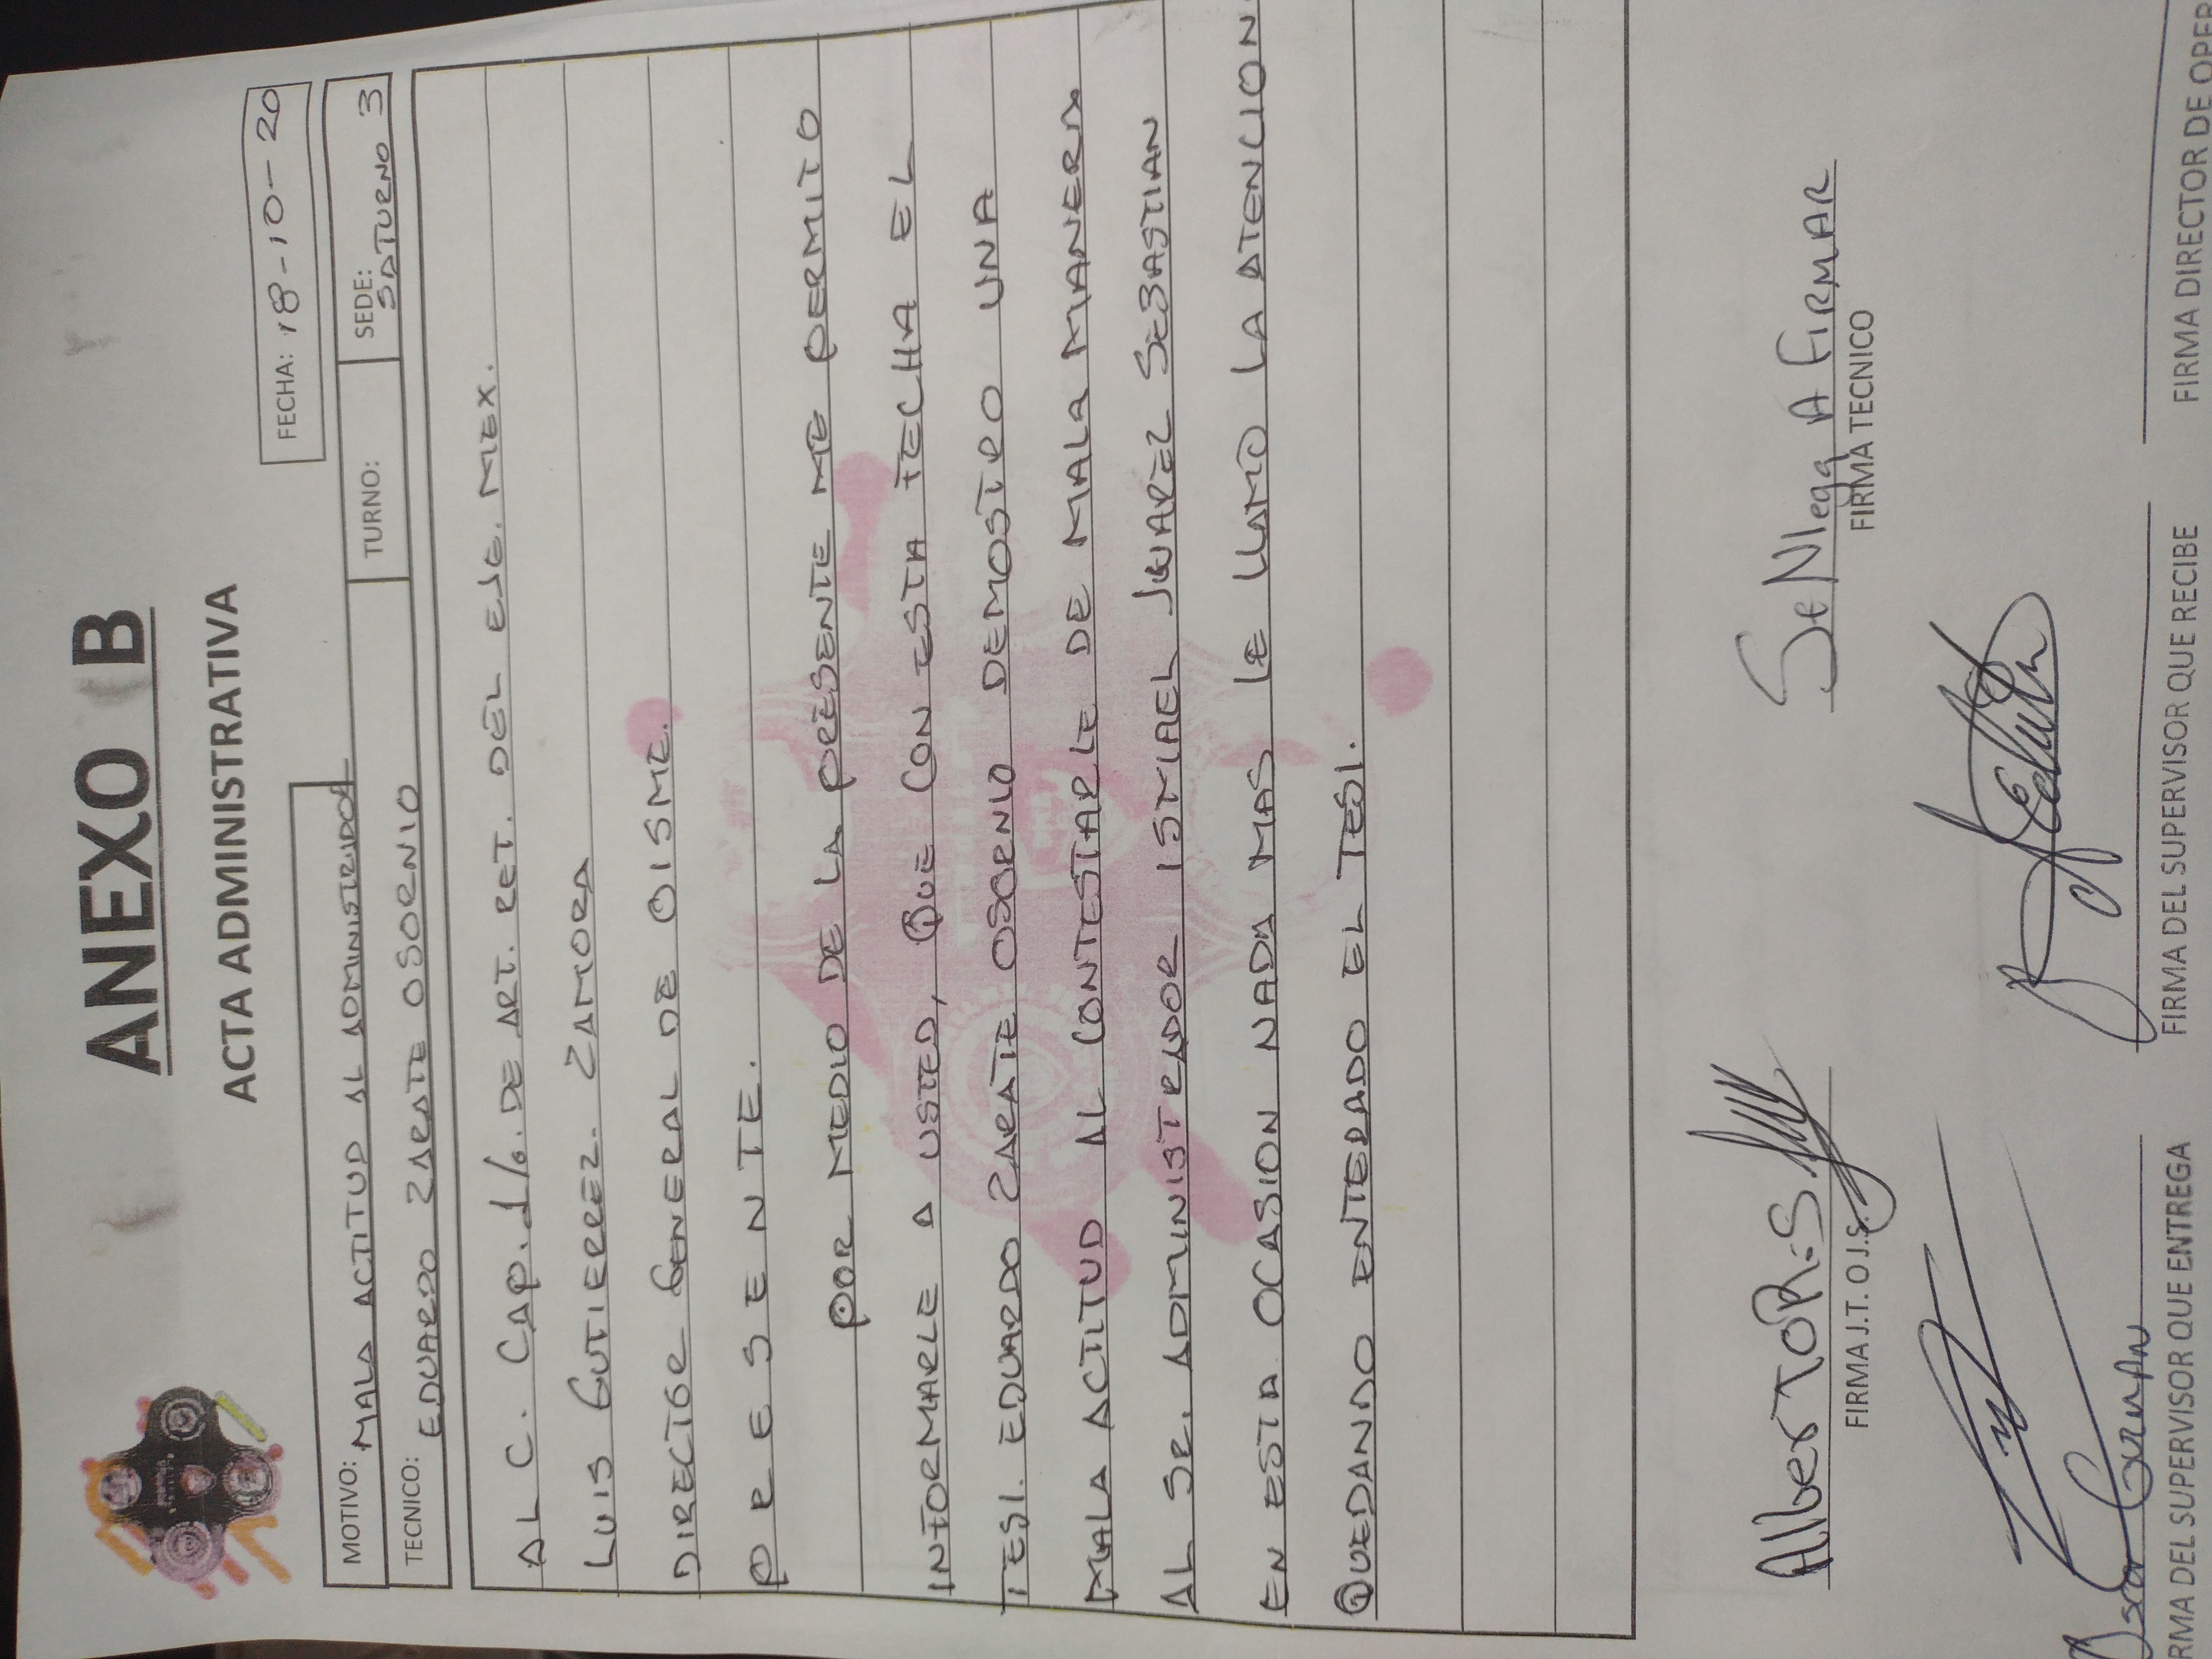 ANEXO B
ACTA ADMINISTRATIVA
FECHA: 18-10-20
MOTIVO: MALA ACTITUD AL ADMINISTRADOR
TURNO:
SEDE: SATURNO 3
TECNICO: EDUARDO ZARATE OSORNIO
AL C. CAP. 1/o. DE ART. RET. DEL EJE. MEX.
LUIS GUTIERREZ. ZAMORA
DIRECTOR GENERAL DE OISME.
PRESENTE.
POR MEDIO DE LA PRESENTE ME PERMITO
INFORMARLE A USTED, QUE CON ESTA FECHA EL
TESI. EDUARDO ZARATE OSORNIO DEMOSTRO UNA
MALA ACTITUD AL CONTESTARLE DE MALA MANERA
AL SR. ADMINISTRADOR ISMAEL JUAREZ SEBASTIAN
EN ESTA OCASION NADA MAS LE LLAMO LA ATENCION
QUEDANDO ENTERADO EL TESI.
Alberto R.S
Se Niega A FIRMAR
FIRMA J.T. O J.S.
FIRMA TECNICO
Oscar GUZMAN
RMA DEL SUPERVISOR QUE ENTREGA
FIRMA DEL SUPERVISOR QUE RECIBE
FIRMA DIRECTOR DE OPER